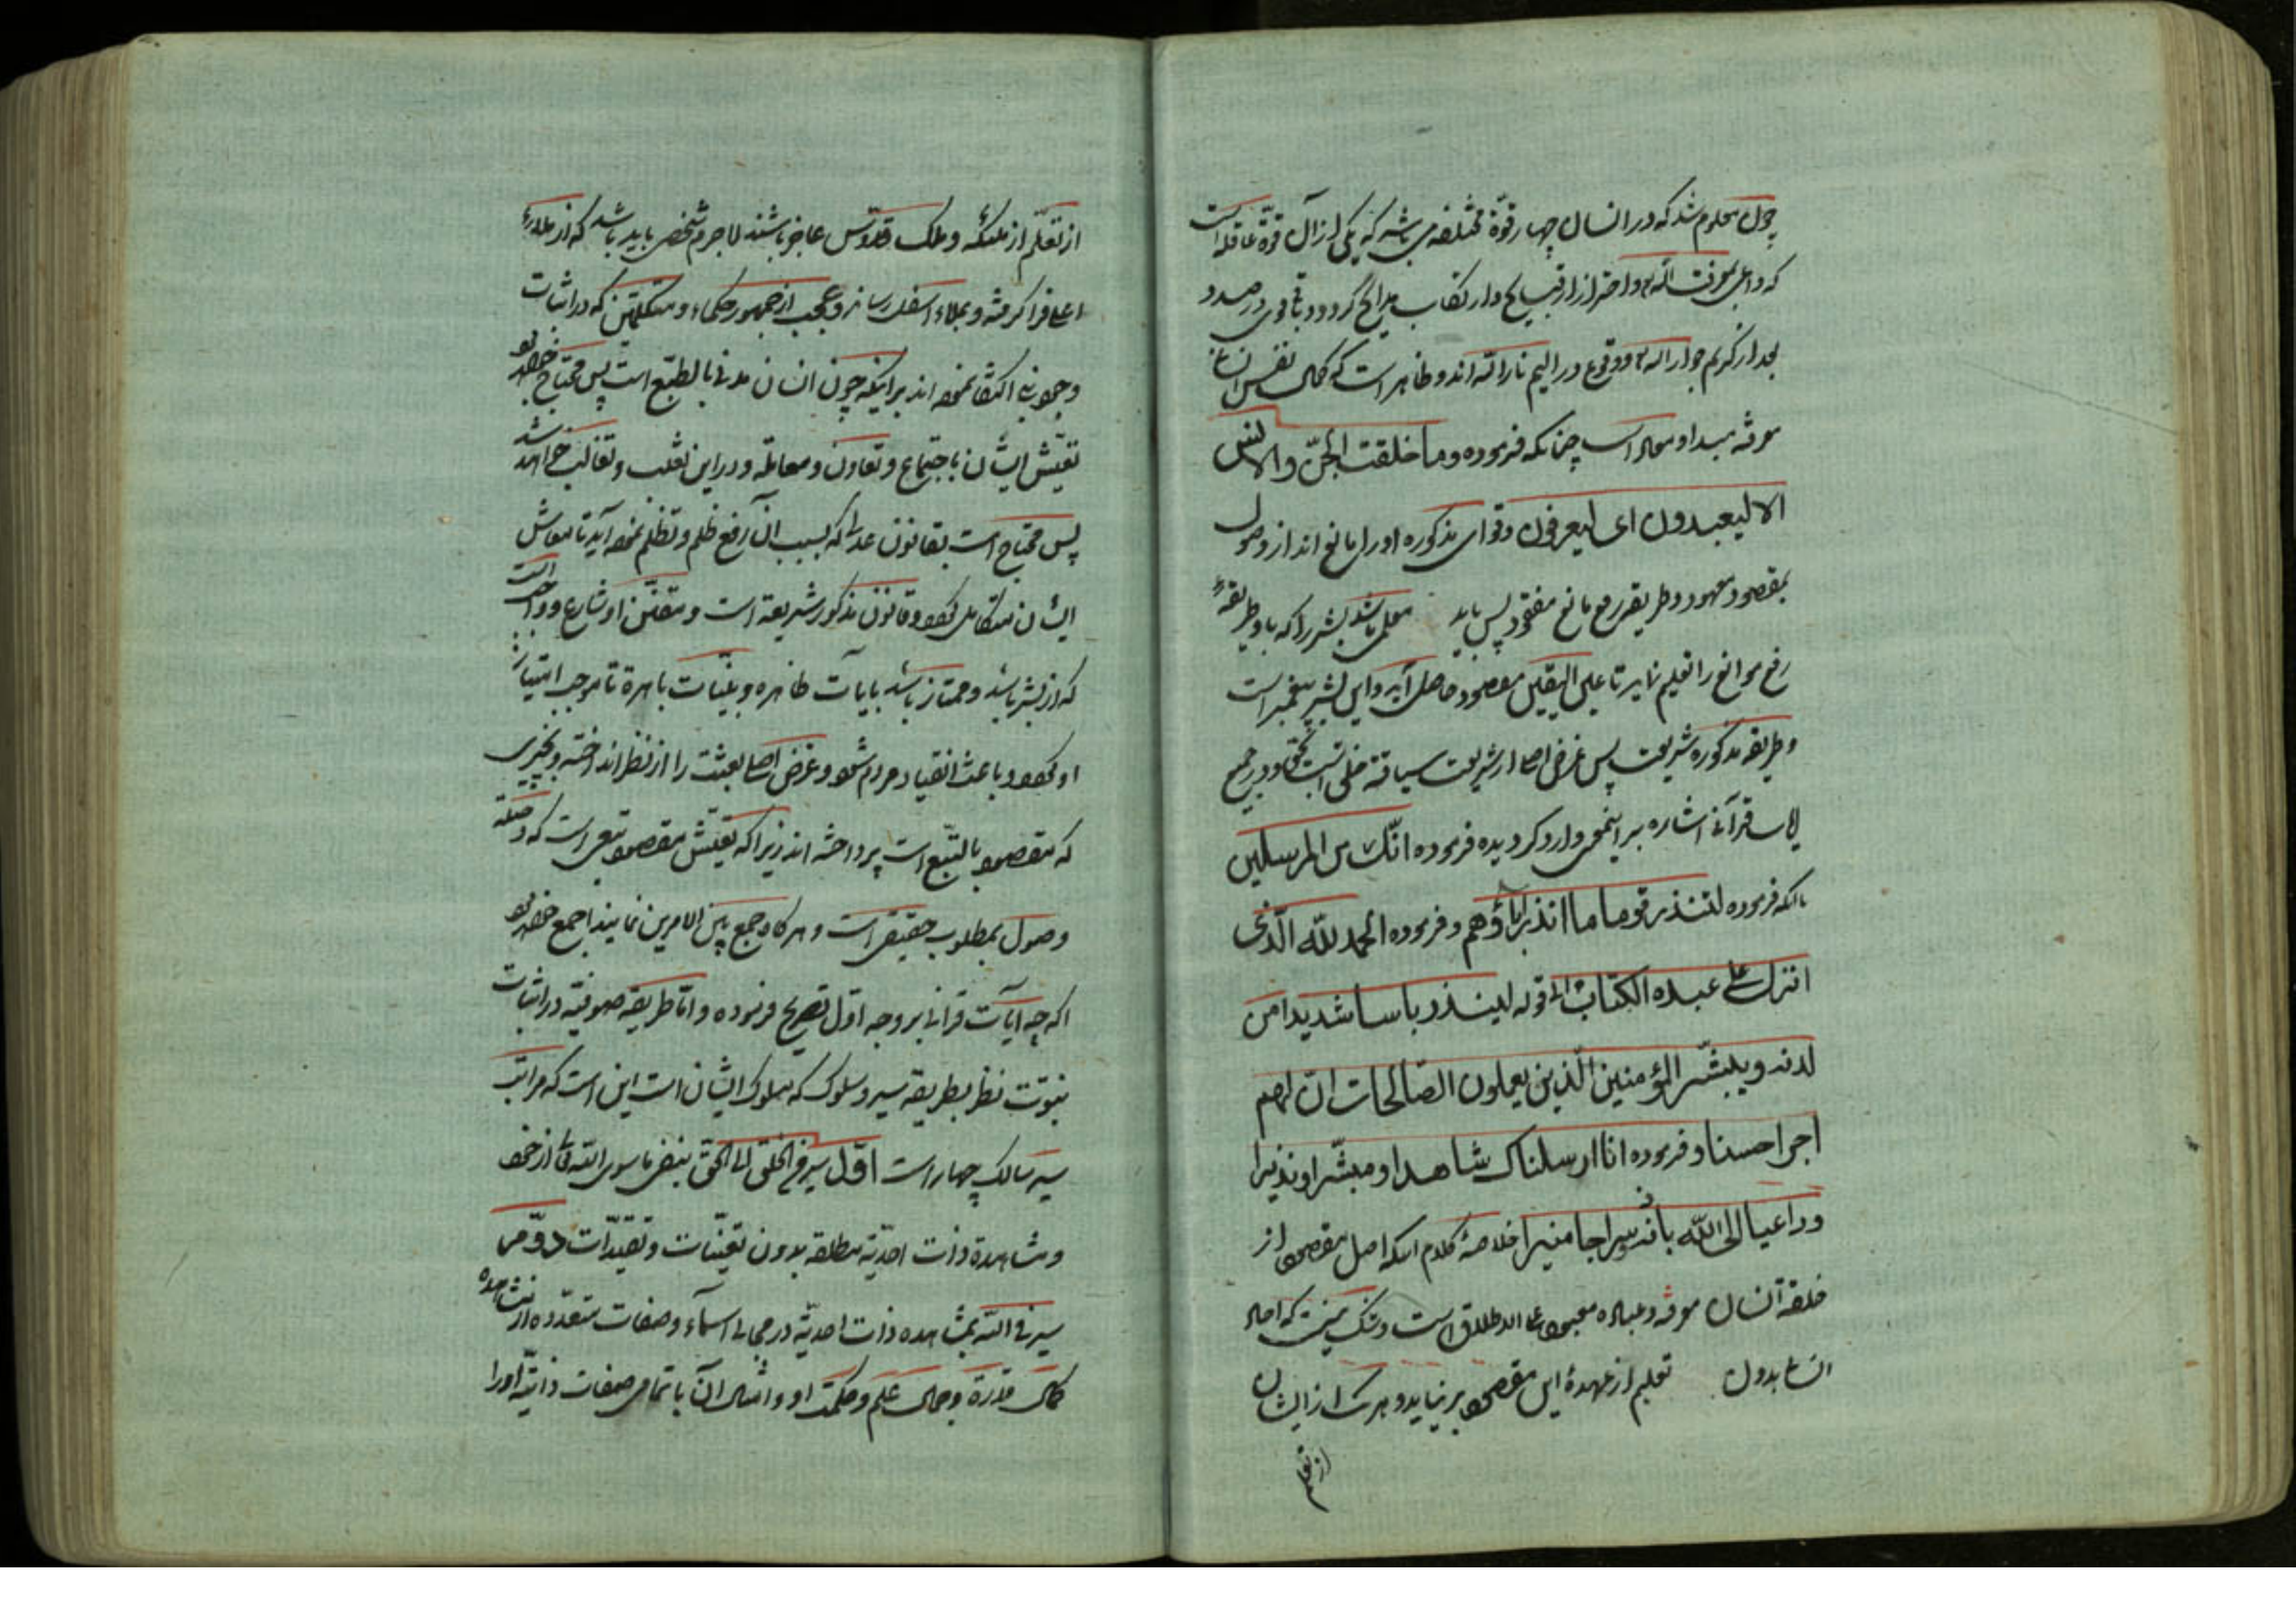 چون معلوم شد که در انسان چهار قوّة مختلفه می باشد که یکی از آن قوّة عاقله است
که داعی بمعرفت اللّه و احتراز از قبایح و ارتکاب مدایح گردد و باقی در صدد
کریم جوار اله و وقوع در الیم نار اللّه اند و ظاهر است که کمال نفس انسانی
معرفة مبدا و معاد است چنانکه فرموده وما خلقت الجنّ والانس
الا لیعبدون ای لیعرفون و قوای مذکوره او را مانع اند از وصول
بمقصود معهود و طریق رفع مانع مفقود پس باید معلمی باشد بشر را که باو طریقه
رفع موانع را تعلیم نماید تا علی الیقین مقصود حاصل آید و این بشر پیغمبر است
و طریقه مذکوره شریعت پس غرض اصلی از شریعت سیاقة خلق است بحق و در جمیع
قرآنی اشاره بر اینمعنی وارد کردیده فرموده انّک لمن المرسلین
فرموده لتنذر قوما ما انذر اباؤهم و فرموده الحمد للّه الّذی
انزل علی عبده الکتاب الی قوله لینذر باسا شدیدا من
لدنه ویبشّر المؤمنین الّذین یعملون الصّالحات انّ لهم
اجرا حسنا و فرموده انا ارسلناک شاهدا ومبشّرا ونذیرا
وداعیا الی اللّه باذنه وسراجا منیرا خلاصۀ کلام آنکه اصل مقصود از
خلقة انسان معرفة و عبادة معبود علی الاطلاق است و شک نیست که
بدون تعلیم از عهدۀ این مقصود بر نیاید و هر یک از ایشان
از تعلم
از تعلّم از ملئکه و ملک قدّوس عاجز باشند لا جرم شخصی باید باشد که از ملاء
اعلی فرا گرفته و بملاء اسفل رساند و عجب از جمهور حکماء و متکلمین که در اثبات
وجوب نبی اکتفا نموده اند بر اینکه چون انسان مدنی بالطّبع است پس محتاج خواهد بود
تعیّش ایشان باجتماع و تعاون و معامله و در این تغلب و تغالب خواهد شد
پس محتاج است بقانون عدل که بسبب آن رفع ظلم و تظلم نموده آید تا معاش
ایشان متکامل گردد و قانون مذکور شریعة است و مقنّن او شارع و واجب است
که از بشر باشد و ممتاز باشد بایات ظاهره و بیّنات باهرة تا موجب امتیاز
او گردد و باعث انقیاد مردم شود و غرض اصلی بعثت را از نظر انداخته و بچیزی
که مقصود بالتّبع است پرداخته اند زیرا که تعیّش مقصود تبعی است که وصلة
وصول بمطلوب حقیقی است و هر گاه جمع بین الامرین نمایند اجمع خواهد بود
اگر چه آیات قرانی بر وجه اوّل تصریح فرموده و امّا طریقه صوفیّه در اثبات
نبوّت نظر بطریقه سیر و سلوک که مسلوک ایشان است این است که مراتب
سیر سالک چهار است اوّل سیر من الخلق الی الحق بنفی ما سوی اللّه تعالی از خود
و مشاهدة ذات احدیّة مطلقه بدون تعیّنات و تقیّدات دوّم
سیر فی اللّه بمشاهده ذات احدیّة در مجالی اسمآء و صفات متعدّده از مشاهده
کمال قدرة و جمال علم و حکمت او و امثال آن با تمامی صفات ذاتیّه او را